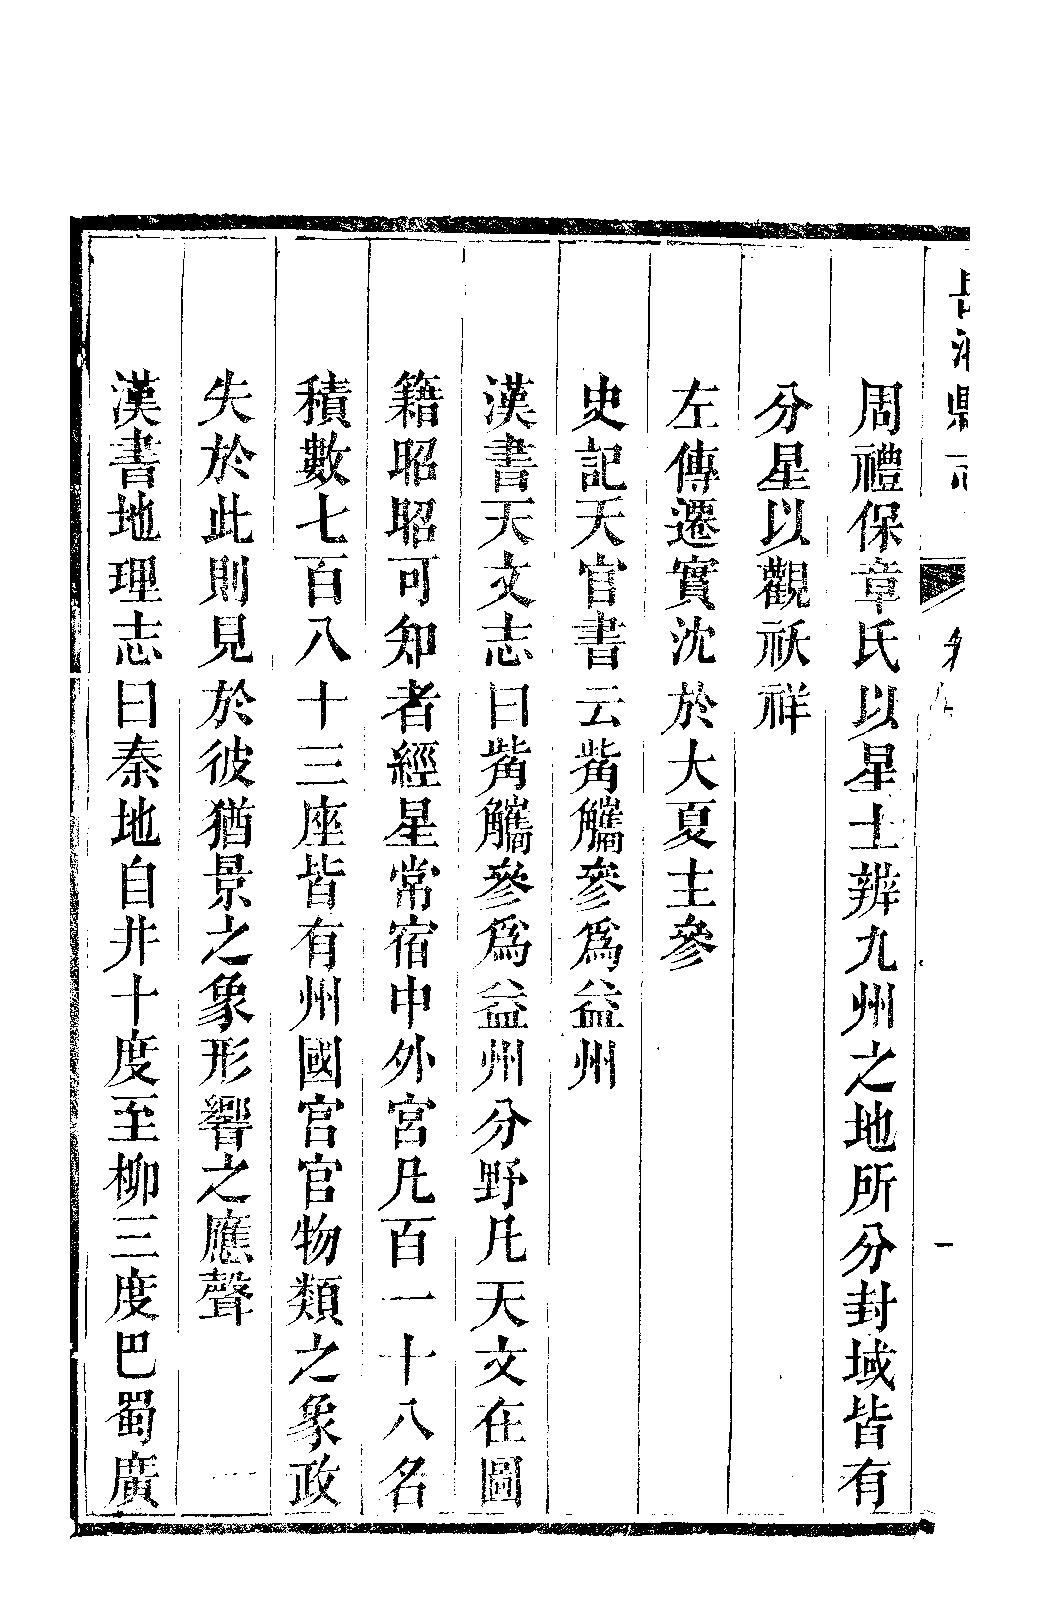 周禮保章氏以星土辨九州之地所分封域皆有
分星以觀祅祥
左傳遷實沈於大夏主參
史記天官書云觜觿參爲益州
漢書天文志曰觜觿參爲益州分野凡天文在圖
籍昭昭可知者經星常宿中外宮凡百一十八名
積數七百八十三座皆有州國官宮物類之象政
失於此則見於彼猶景之象形響之應聲
漢書地理志曰秦地自井十度至柳三度巴蜀廣